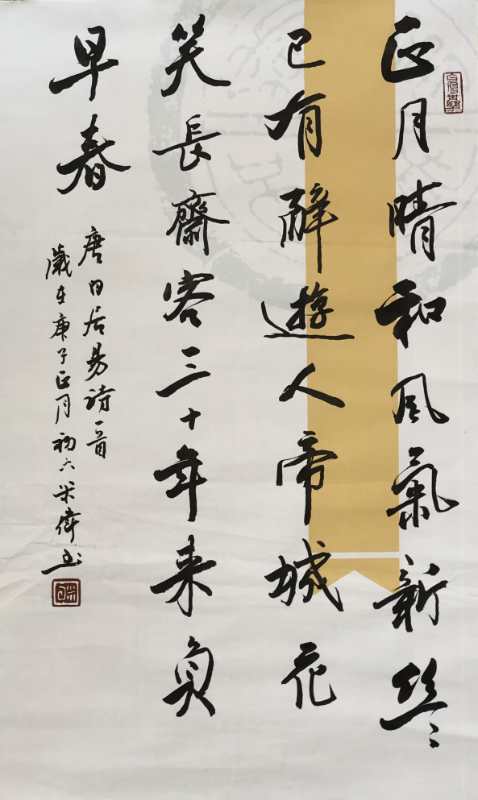 正月晴和风氣新纷々
已有醉遊人帝城花
笑長齋客三十年来負
早春
唐白居易诗一首
歲在庚子正月初六米偉书